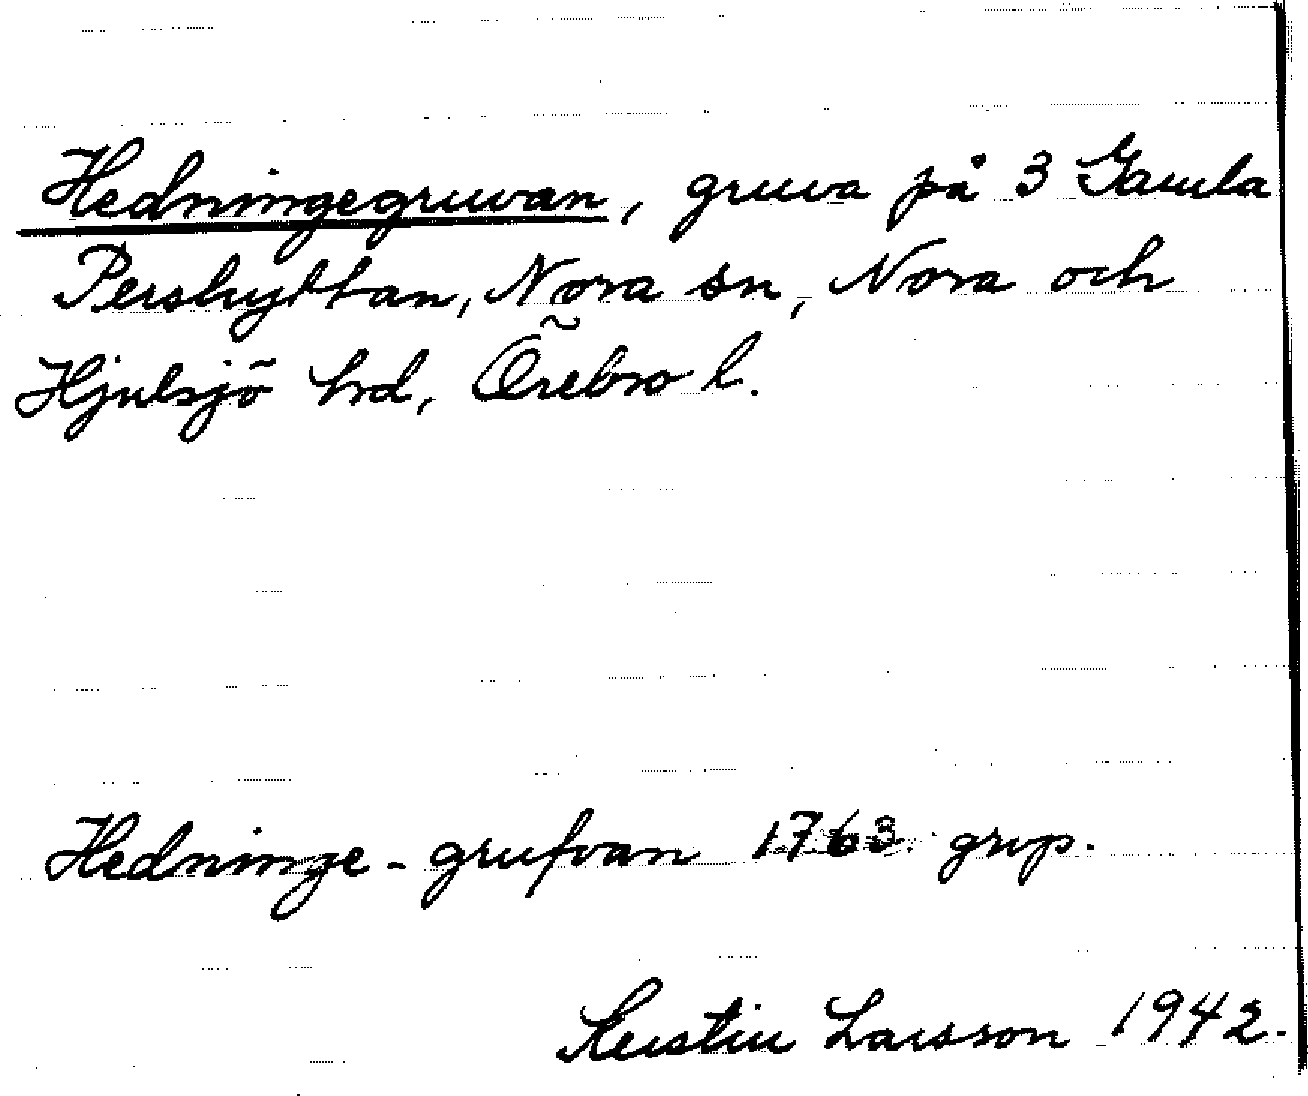 Hedningegruvan, gruva på 3 Gamla
Pershyttan, Nora sn, Nora och
Hjulsjö hd, Örebro l.
Hedninge-grufvan 1763 grup.
Kerstin Larsson 1942.